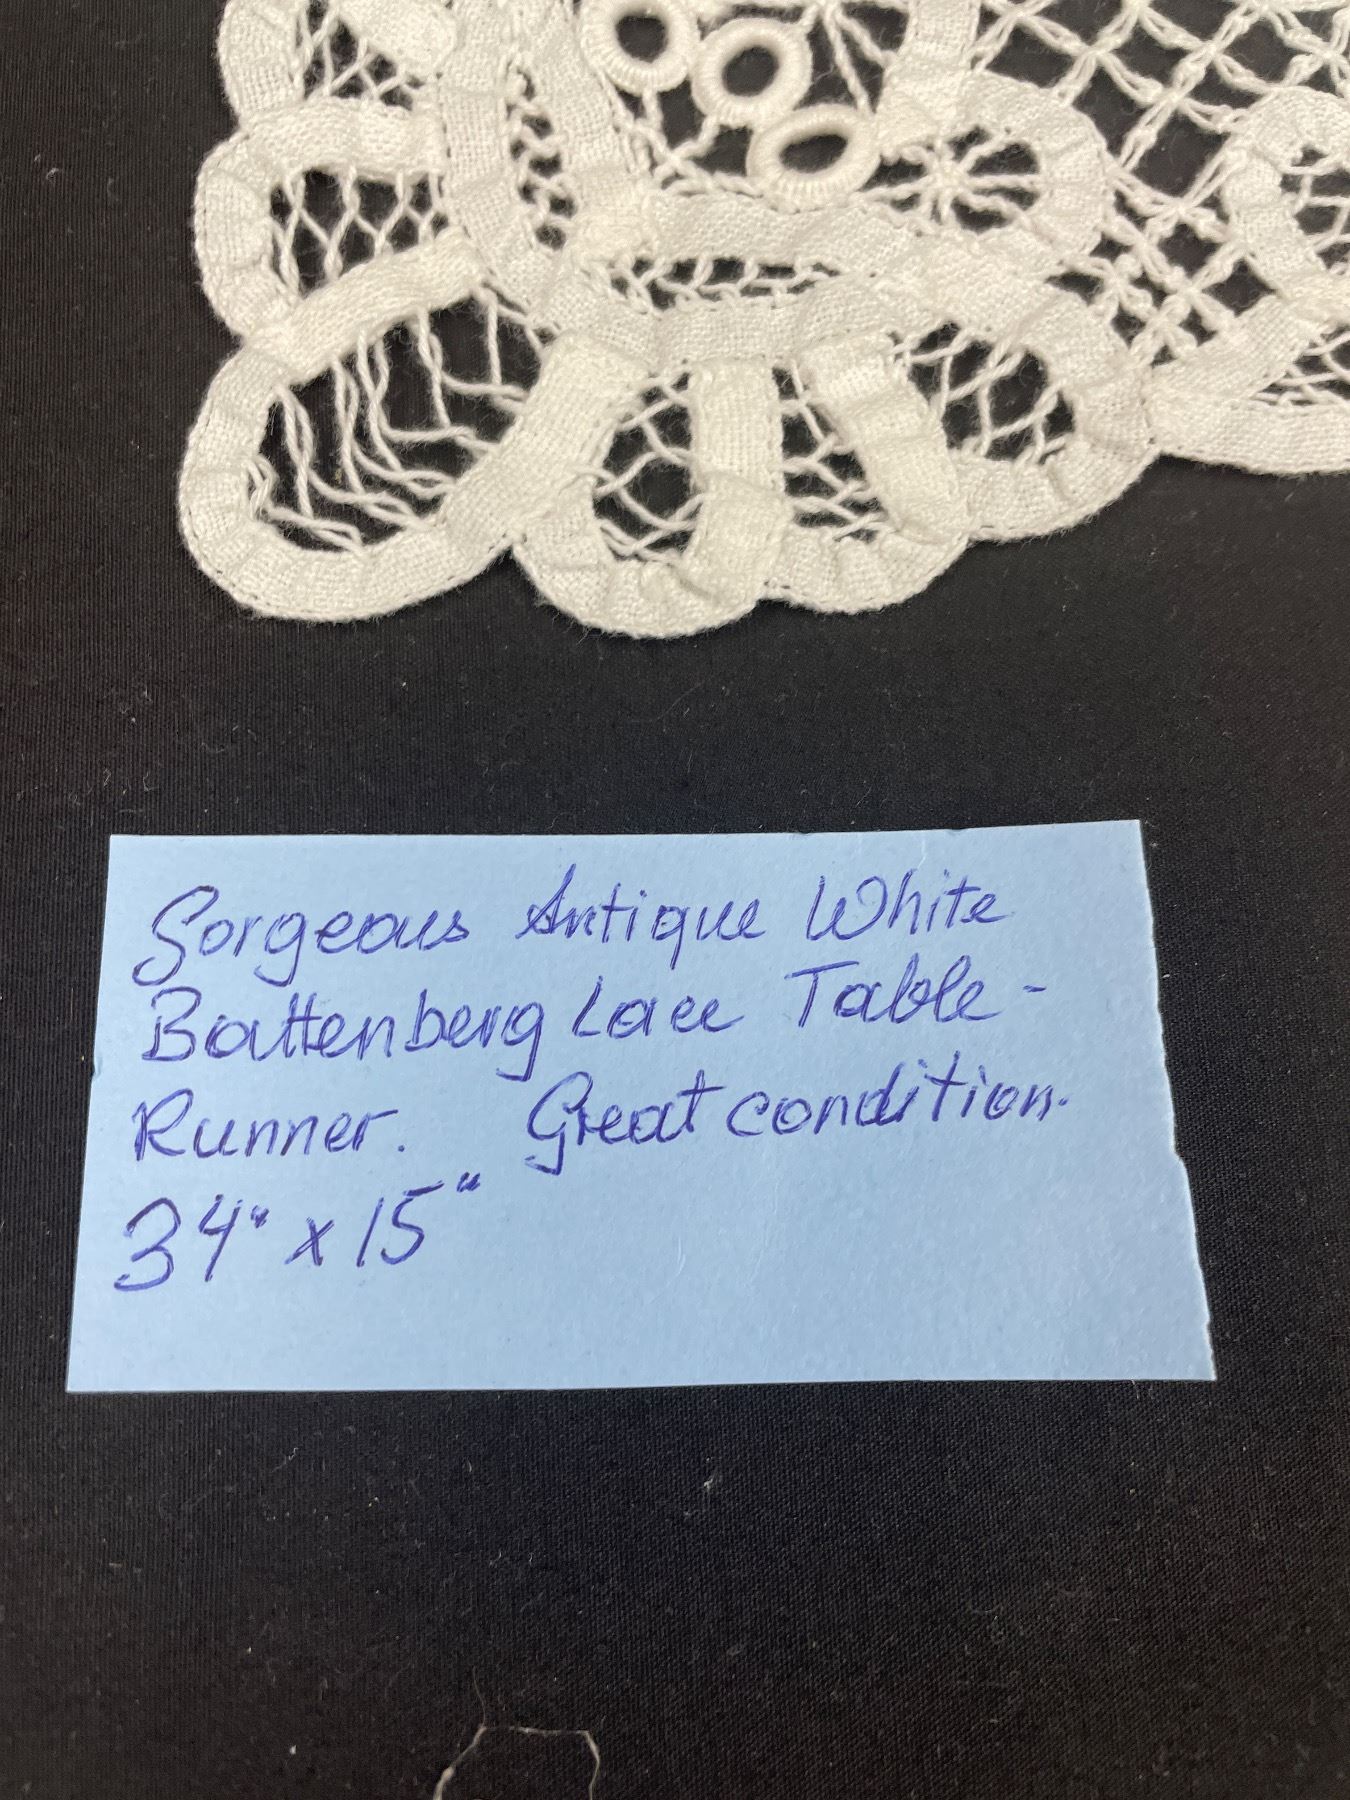 Gorgeous Antique White
Battenberg Lace Table-
Runner. Great condition.
34" x 15"